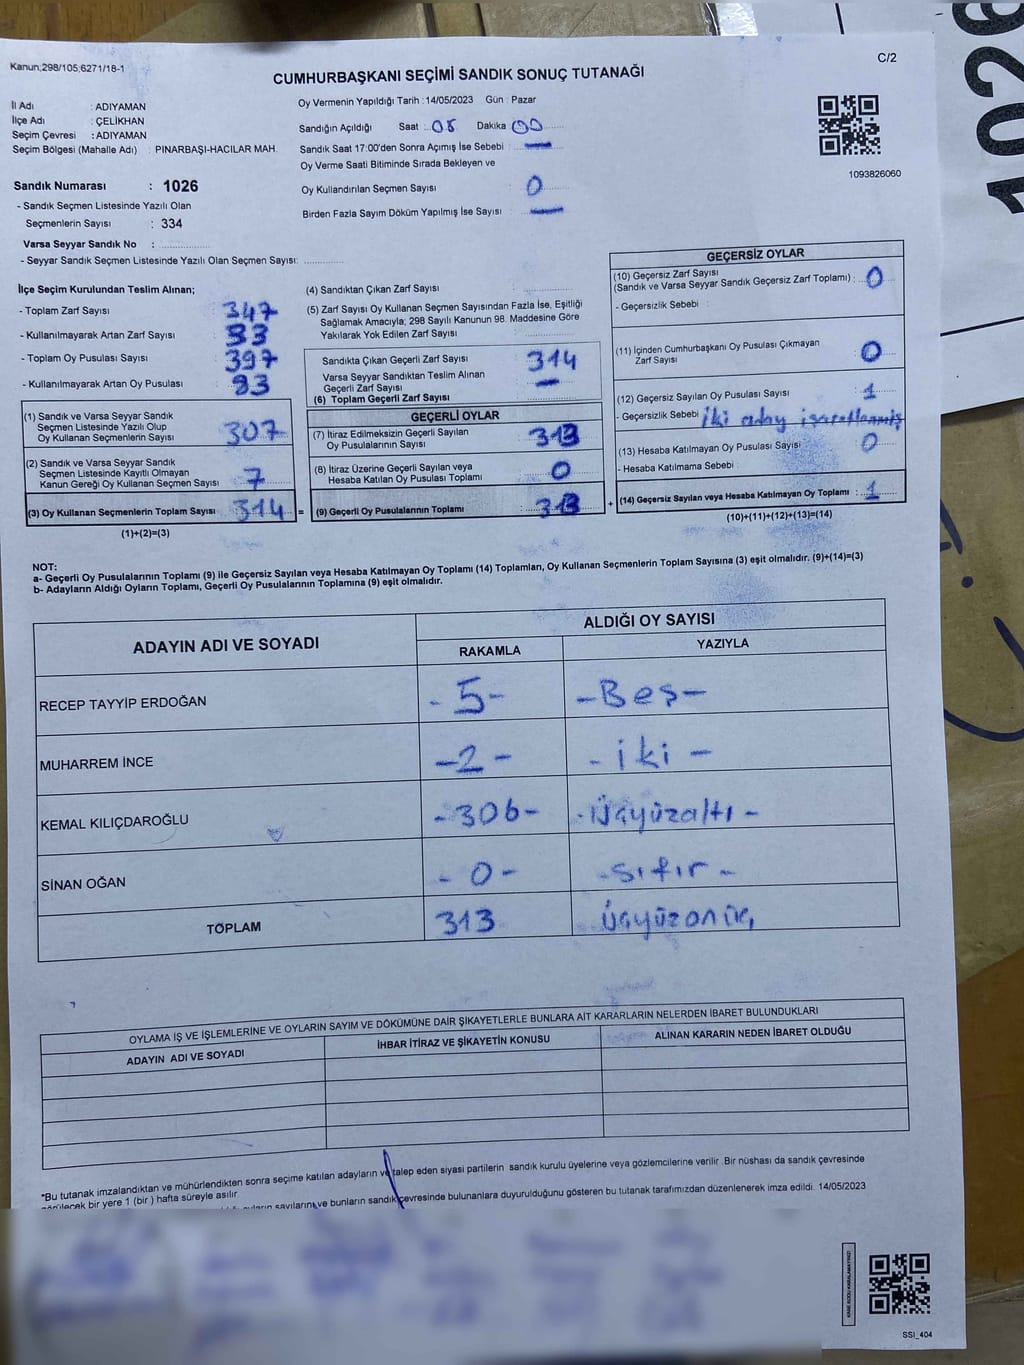 Kanun;298/105;6271/18-1
C/2
CUMHURBAŞKANI SEÇİMİ SANDIK SONUÇ TUTANAĞI
İl Adı : ADIYAMAN
İlçe Adı : ÇELİKHAN
Seçim Çevresi : ADIYAMAN
Seçim Bölgesi (Mahalle Adı) : PINARBAŞI-HACILAR MAH.
Sandık Numarası : 1026
- Sandık Seçmen Listesinde Yazılı Olan
Seçmenlerin Sayısı : 334
Varsa Seyyar Sandık No :
- Seyyar Sandık Seçmen Listesinde Yazılı Olan Seçmen Sayısı:
Oy Vermenin Yapıldığı Tarih : 14/05/2023 Gün : Pazar
Sandığın Açıldığı Saat : 08 Dakika 00
Sandık Saat 17:00'den Sonra Açımış İse Sebebi : —
Oy Verme Saati Bitiminde Sırada Bekleyen ve
Oy Kullandırılan Seçmen Sayısı : 0
Birden Fazla Sayım Döküm Yapılmış İse Sayısı : —
1093826060
1026
İlçe Seçim Kurulundan Teslim Alınan;
- Toplam Zarf Sayısı : 347
- Kullanılmayarak Artan Zarf Sayısı : 33
- Toplam Oy Pusulası Sayısı : 397
- Kullanılmayarak Artan Oy Pusulası : 83
(1) Sandık ve Varsa Seyyar Sandık
Seçmen Listesinde Yazılı Olup
Oy Kullanan Seçmenlerin Sayısı : 307
(2) Sandık ve Varsa Seyyar Sandık
Seçmen Listesinde Kayıtlı Olmayan
Kanun Gereği Oy Kullanan Seçmen Sayısı : 7
(3) Oy Kullanan Seçmenlerin Toplam Sayısı : 314 =
(1)+(2)=(3)
(4) Sandıktan Çıkan Zarf Sayısı :
(5) Zarf Sayısı Oy Kullanan Seçmen Sayısından Fazla İse, Eşitliği
Sağlamak Amacıyla; 298 Sayılı Kanunun 98. Maddesine Göre
Yakılarak Yok Edilen Zarf Sayısı :
Sandıkta Çıkan Geçerli Zarf Sayısı : 314
Varsa Seyyar Sandıktan Teslim Alınan
Geçerli Zarf Sayısı : —
(6) Toplam Geçerli Zarf Sayısı :
GEÇERLİ OYLAR
(7) İtiraz Edilmeksizin Geçerli Sayılan
Oy Pusulalarının Sayısı : 313
(8) İtiraz Üzerine Geçerli Sayılan veya
Hesaba Katılan Oy Pusulası Toplamı : 0
(9) Geçerli Oy Pusulalarının Toplamı : 313 +
GEÇERSİZ OYLAR
(10) Geçersiz Zarf Sayısı
(Sandık ve Varsa Seyyar Sandık Geçersiz Zarf Toplamı) : 0
- Geçersizlik Sebebi :
(11) İçinden Cumhurbaşkanı Oy Pusulası Çıkmayan
Zarf Sayısı : 0
(12) Geçersiz Sayılan Oy Pusulası Sayısı : 1
- Geçersizlik Sebebi : İki aday işaretlenmiş
(13) Hesaba Katılmayan Oy Pusulası Sayısı : 0
- Hesaba Katılmama Sebebi :
(14) Geçersiz Sayılan veya Hesaba Katılmayan Oy Toplamı : 1
(10)+(11)+(12)+(13)=(14)
NOT:
a- Geçerli Oy Pusulalarının Toplamı (9) ile Geçersiz Sayılan veya Hesaba Katılmayan Oy Toplamı (14) Toplamları, Oy Kullanan Seçmenlerin Toplam Sayısına (3) eşit olmalıdır. (9)+(14)=(3)
b- Adayların Aldığı Oyların Toplamı, Geçerli Oy Pusulalarının Toplamına (9) eşit olmalıdır.
ADAYIN ADI VE SOYADI
ALDIĞI OY SAYISI
RAKAMLA YAZIYLA
RECEP TAYYİP ERDOĞAN -5- -Beş-
MUHARREM İNCE -2- -iki-
KEMAL KILIÇDAROĞLU -306- -Üçyüzaltı-
SİNAN OĞAN -0- -sıfır-
TOPLAM 313 Üçyüzonüç
OYLAMA İŞ VE İŞLEMLERİNE VE OYLARIN SAYIM VE DÖKÜMÜNE DAİR ŞİKAYETLERLE BUNLARA AİT KARARLARIN NELERDEN İBARET BULUNDUKLARI
ADAYIN ADI VE SOYADI İHBAR İTİRAZ VE ŞİKAYETİN KONUSU ALINAN KARARIN NEDEN İBARET OLDUĞU
*Bu tutanak imzalandıktan ve mühürlendikten sonra seçime katılan adayların ve talep eden siyasi partilerin sandık kurulu üyelerine veya gözlemcilerine verilir. Bir nüshası da sandık çevresinde
görülecek bir yere 1 (bir) hafta süreyle asılır
sayılarını ve bunların sandık çevresinde bulunanlara duyurulduğunu gösteren bu tutanak tarafımızdan düzenlenerek imza edildi. 14/05/2023
SSI_404